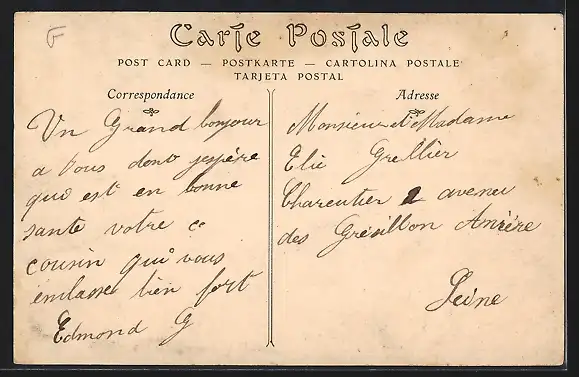 F
Carte Postale
POST CARD — POSTKARTE — CARTOLINA POSTALE
TARJETA POSTAL
Correspondance
Adresse
Un Grand bonjour
a Vous dont jespère
qui est en bonne
sante votre ce
cousin qui vous
embasse bien fort
Edmond G
Monsieur et Madame
Elie Grellier
Charentier 2 avenu
des Gresillon Anière
Seine